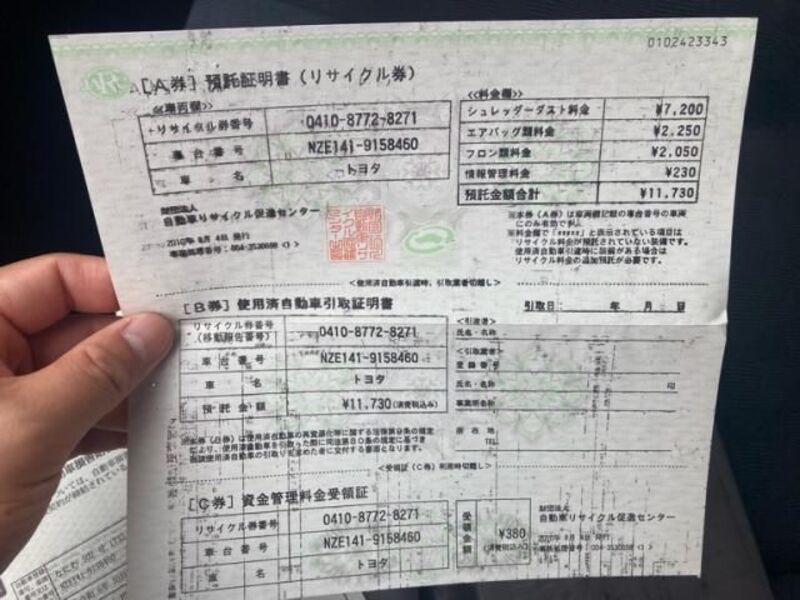 0102423343
[A券] 預託証明書(リサイクル券)
≪車両欄≫
リサイクル券番号 0410-8772-8271
車台番号 NZE141-9158460
車名 トヨタ
≪料金欄≫
シュレッダーダスト料金 ¥7,200
エアバッグ類料金 ¥2,250
フロン類料金 ¥2,050
情報管理料金 ¥230
預託金額合計 ¥11,730
財団法人
自動車リサイクル促進センター
2010年8月4日発行
※本券(A券)は車両欄記載の車台番号の車両
にのみ有効です。
※料金欄で「*****」と表示されている項目は
リサイクル料金が預託されていない装備です。
使用済自動車引渡時に装備がある場合は
リサイクル料金の追加預託が必要です。
<使用済自動車引渡時、引取業者切離し>
[B券] 使用済自動車引取証明書
引取日: 年 月 日
リサイクル券番号
(移動報告番号) 0410-8772-8271
車台番号 NZE141-9158460
車名 トヨタ
預託金額 ¥11,730(消費税込み)
<引渡者>
氏名・名称
<引取業者>
登録番号
氏名・名称 印
事業所名称
所在地
TEL
<受領証(C券)利用時切離し>
[C券] 資金管理料金受領証
リサイクル券番号 0410-8772-8271
車台番号 NZE141-9158460
車名 トヨタ
受領金額 ¥380
(消費税込み)
財団法人
自動車リサイクル促進センター
2010年8月4日発行